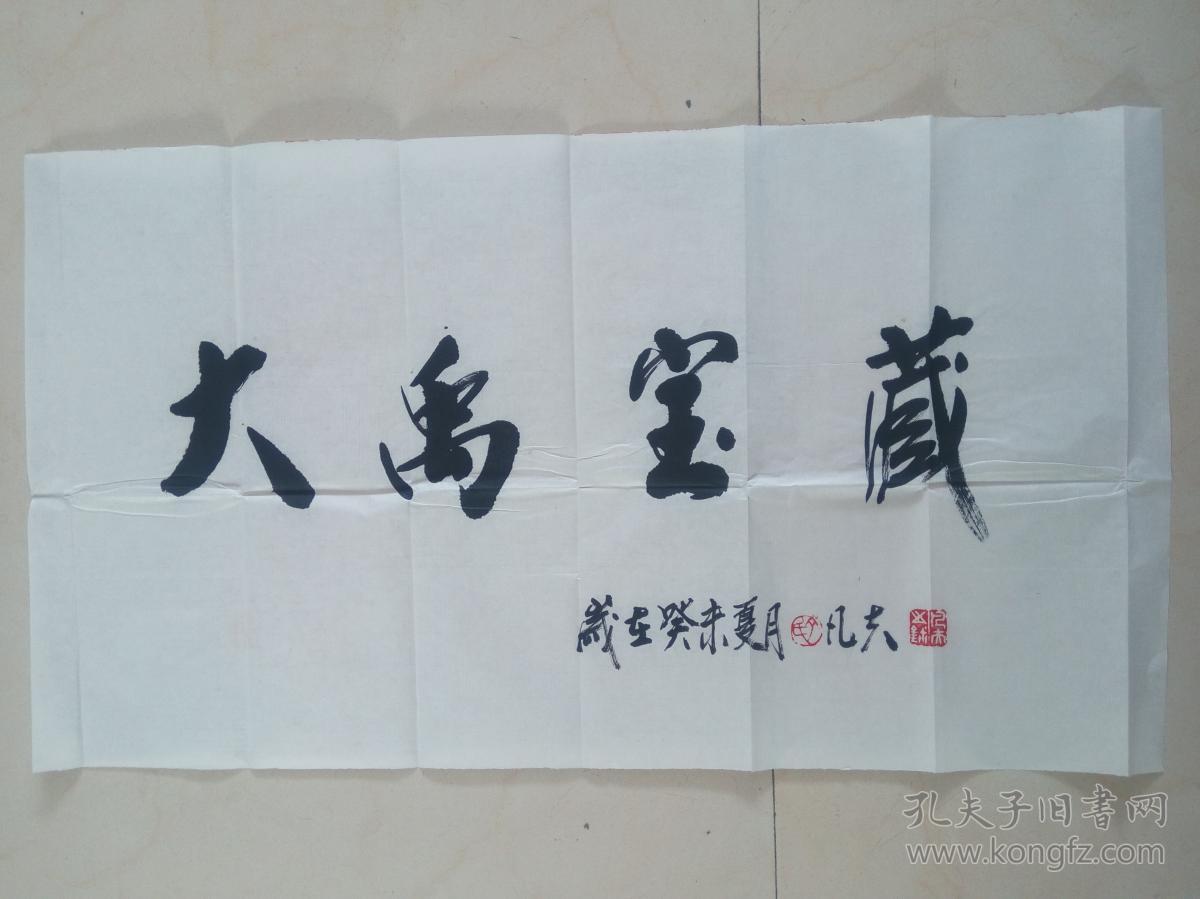 大禹宝藏
歲在癸未夏月 凡夫
孔夫子旧書网
www.kongfz.com